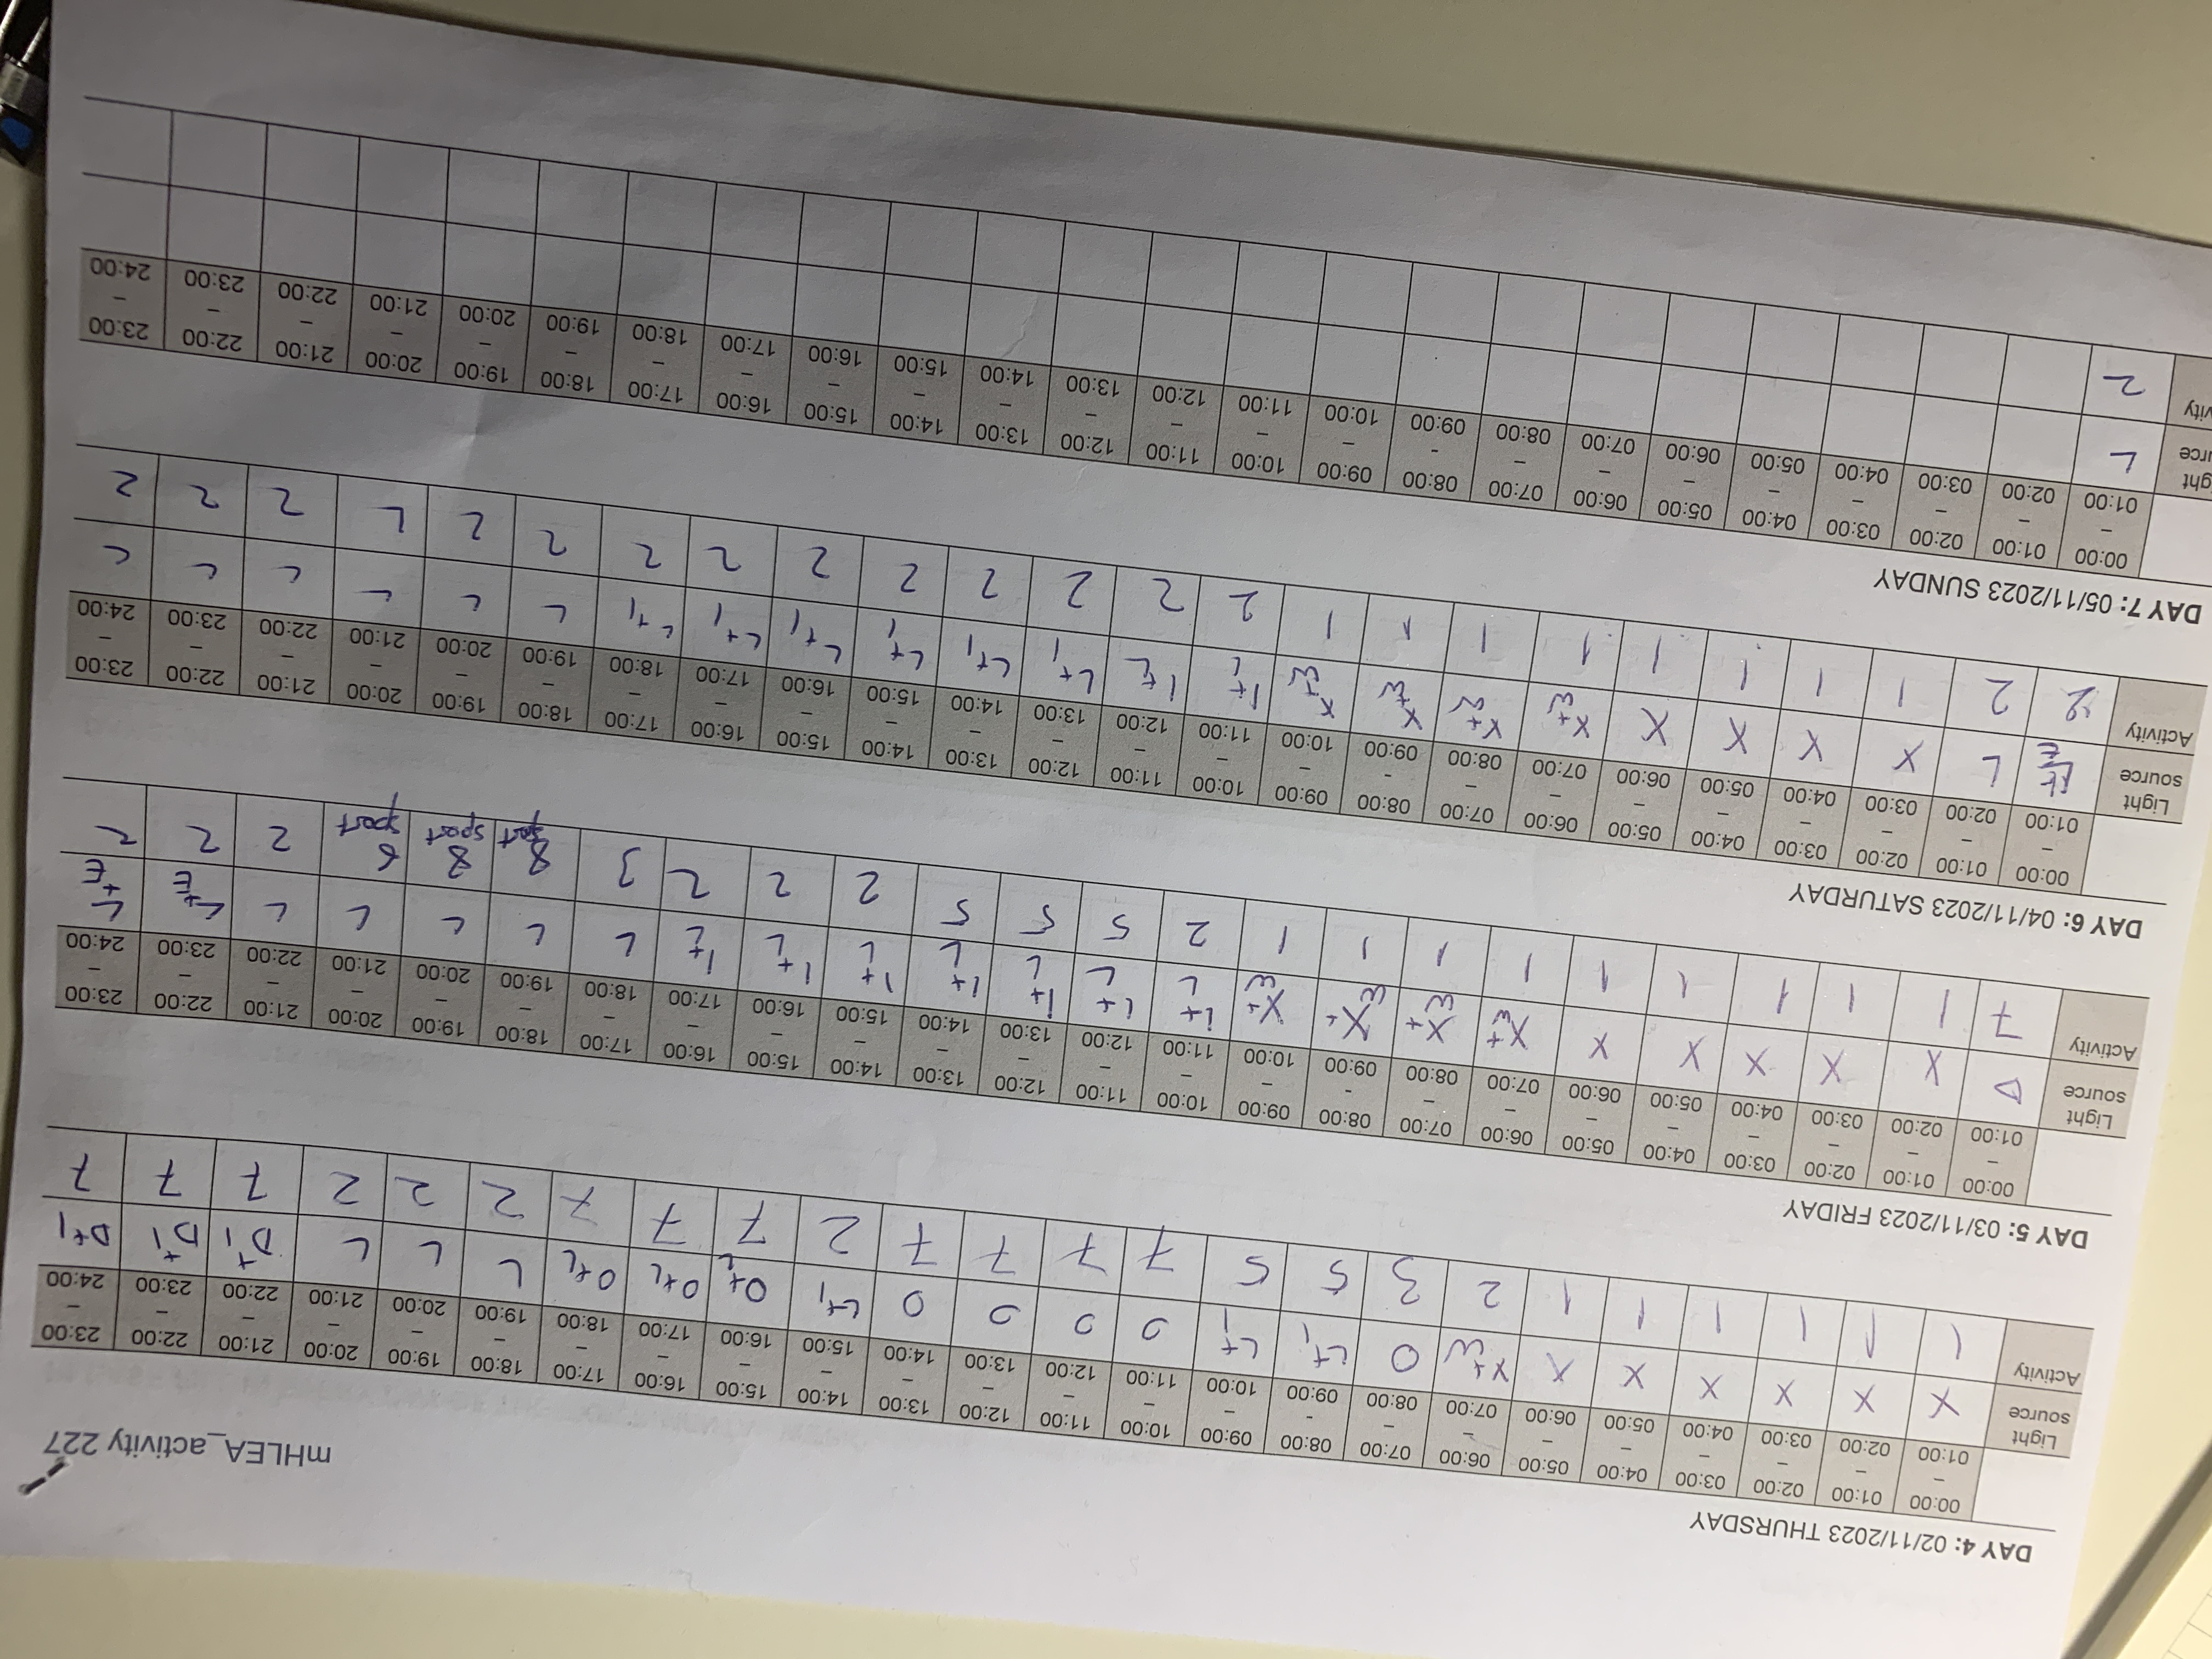 mHLEA_activity 227
DAY 4: 02/11/2023 THURSDAY
00:00 – 01:00 01:00 – 02:00 02:00 – 03:00 03:00 – 04:00 04:00 – 05:00 05:00 – 06:00 06:00 – 07:00 07:00 – 08:00 08:00 – 09:00 09:00 – 10:00 10:00 – 11:00 11:00 – 12:00 12:00 – 13:00 13:00 – 14:00 14:00 – 15:00 15:00 – 16:00 16:00 – 17:00 17:00 – 18:00 18:00 – 19:00 19:00 – 20:00 20:00 – 21:00 21:00 – 22:00 22:00 – 23:00 23:00 – 24:00
Light source X X X X X X X+W O L+I L+I O O O O L+I O+L O+L O+L L L L D+I D+I D+I
Activity 1 1 1 1 1 1 2 3 5 5 7 7 7 7 2 7 7 7 2 2 2 7 7 7
DAY 5: 03/11/2023 FRIDAY
00:00 – 01:00 01:00 – 02:00 02:00 – 03:00 03:00 – 04:00 04:00 – 05:00 05:00 – 06:00 06:00 – 07:00 07:00 – 08:00 08:00 – 09:00 09:00 – 10:00 10:00 – 11:00 11:00 – 12:00 12:00 – 13:00 13:00 – 14:00 14:00 – 15:00 15:00 – 16:00 16:00 – 17:00 17:00 – 18:00 18:00 – 19:00 19:00 – 20:00 20:00 – 21:00 21:00 – 22:00 22:00 – 23:00 23:00 – 24:00
Light source D X X X X X X+W X+W X+W X+W I+L I+L I+L I+L I+L I+L I+L L L L L L L+E L+E
Activity 7 1 1 1 1 1 1 1 1 1 2 5 5 5 2 2 2 3 8 sport 8 sport 6 sport 2 2 2
DAY 6: 04/11/2023 SATURDAY
00:00 – 01:00 01:00 – 02:00 02:00 – 03:00 03:00 – 04:00 04:00 – 05:00 05:00 – 06:00 06:00 – 07:00 07:00 – 08:00 08:00 – 09:00 09:00 – 10:00 10:00 – 11:00 11:00 – 12:00 12:00 – 13:00 13:00 – 14:00 14:00 – 15:00 15:00 – 16:00 16:00 – 17:00 17:00 – 18:00 18:00 – 19:00 19:00 – 20:00 20:00 – 21:00 21:00 – 22:00 22:00 – 23:00 23:00 – 24:00
Light source L+E L X X X X X+W X+W X+W X+W I+L I+L L+I L+I L+I L+I L+I L+I L L L L L L
Activity 2 2 1 1 1 1 1 1 1 1 2 2 2 2 2 2 2 2 2 2 2 2 2 2
DAY 7: 05/11/2023 SUNDAY
00:00 – 01:00 01:00 – 02:00 02:00 – 03:00 03:00 – 04:00 04:00 – 05:00 05:00 – 06:00 06:00 – 07:00 07:00 – 08:00 08:00 – 09:00 09:00 – 10:00 10:00 – 11:00 11:00 – 12:00 12:00 – 13:00 13:00 – 14:00 14:00 – 15:00 15:00 – 16:00 16:00 – 17:00 17:00 – 18:00 18:00 – 19:00 19:00 – 20:00 20:00 – 21:00 21:00 – 22:00 22:00 – 23:00 23:00 – 24:00
ght urce L
vity 2